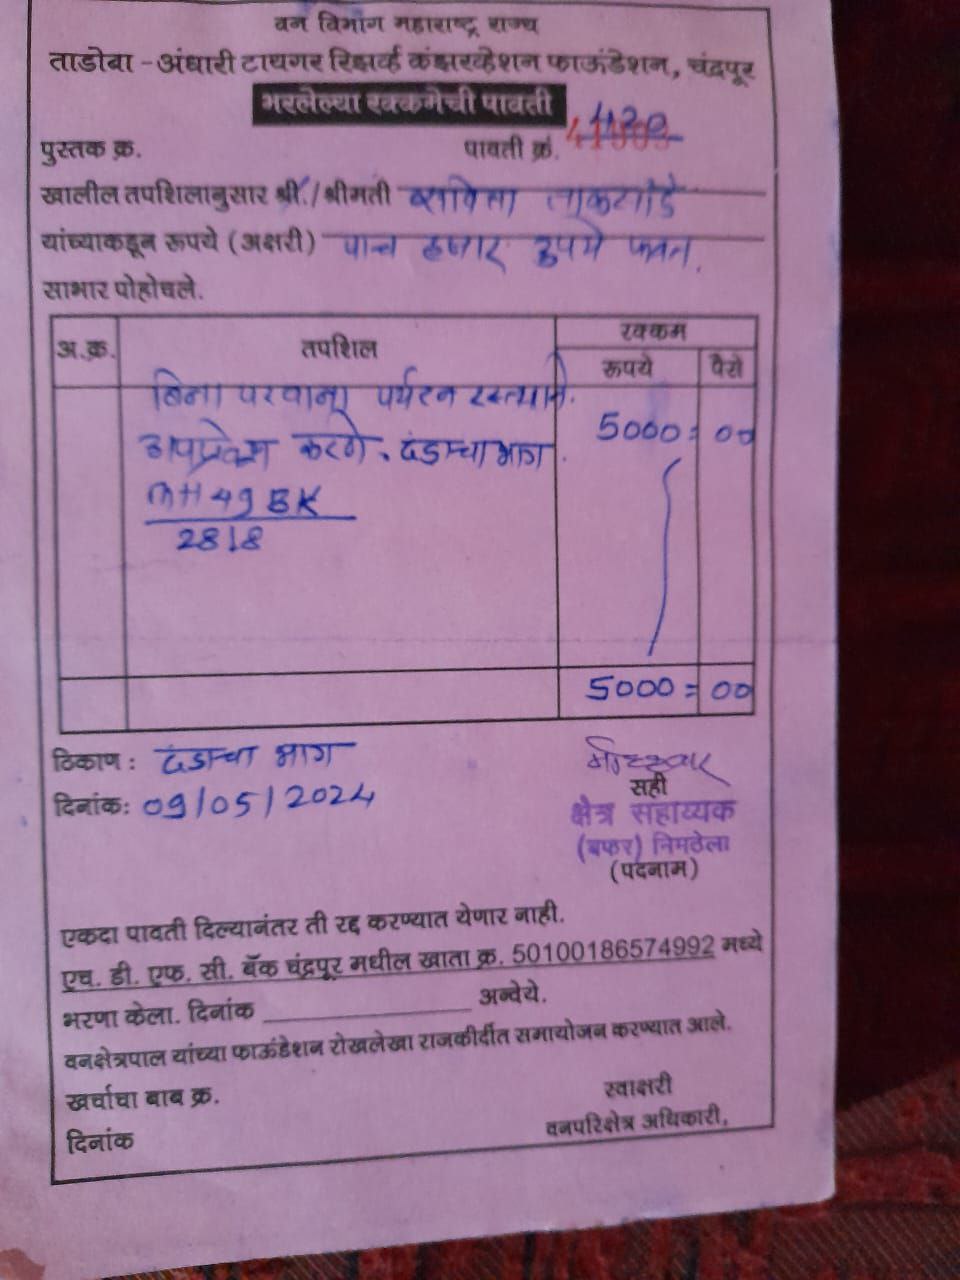 वन विभाग महाराष्ट्र राज्य
ताडोबा - अंधारी टायगर रिझर्व्ह कंझरव्हेशन फाऊंडेशन, चंद्रपूर
भरलेल्या रक्कमेची पावती
पुस्तक क्र. पावती क्रं.
खालील तपशिलानुसार श्री./श्रीमती
यांच्याकडून रूपये (अक्षरी) पाच हजार रुपये फक्त.
साभार पोहोचले.
अ.क्र. तपशिल रक्कम
रूपये पैसे
बिना परवाना पर्यटन रस्त्याने. 5000= 00
करणे. दंडाचा भाग.
MH 49 BK
2818
5000 = 00
ठिकाण : दंडाचा भाग
सही
दिनांक: 09/05/2024
क्षेत्र सहाय्यक
(बफर) निमढेला
(पदनाम)
एकदा पावती दिल्यानंतर ती रद्द करण्यात येणार नाही.
एच. डी. एफ. सी. बँक चंद्रपूर मधील खाता क्र. 50100186574992 मध्ये
भरणा केला. दिनांक अन्वेये.
वनक्षेत्रपाल यांच्या फाऊंडेशन रोखलेखा राजकीर्दीत समायोजन करण्यात आले.
खर्चाचा बाब क्र. स्वाक्षरी
दिनांक वनपरिक्षेत्र अधिकारी,